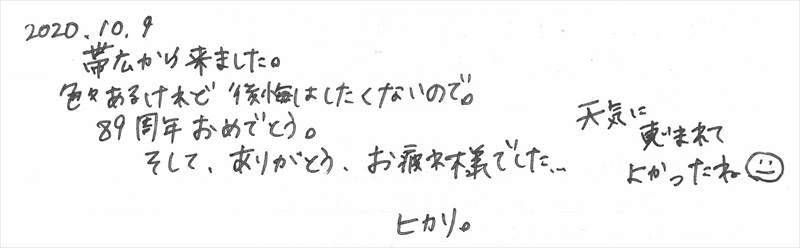 2020.10.9
帯広から来ました。
色々あるけれど 後悔はしたくないので。
89周年おめでとう。
そして、ありがとう、お疲れ様でした…
天気に
恵まれて
よかったね
ヒカリ。